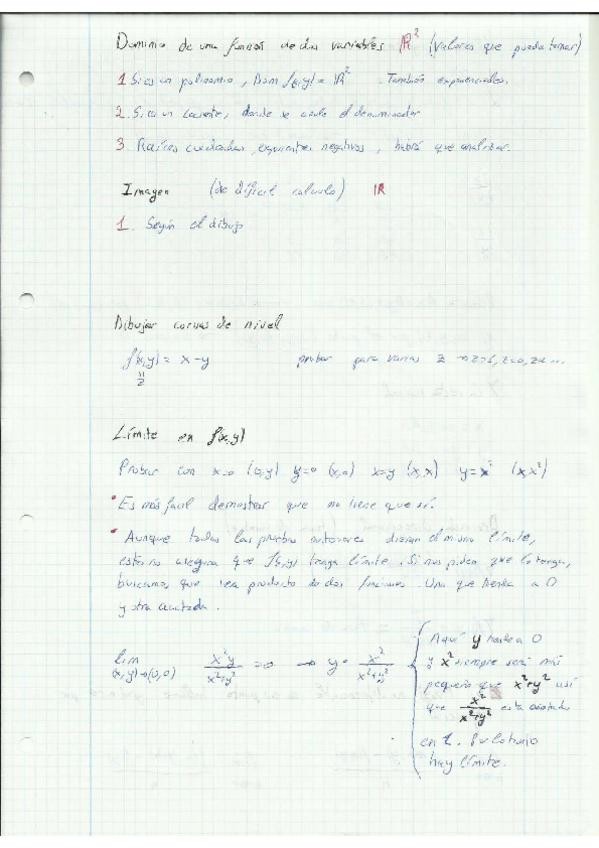 Dominio de una función de dos variables ℝ² (valores que pueda tomar)
1 Si es un polinomio, Dom f(x,y) = ℝ². También exponenciales.
2. Si es un cociente, donde se anule el denominador
3. Raíces cuadradas, negativos, habrá que analizar.
Imagen (de difícil calculo) ℝ
1. Según el dibujo
Dibujar curvas de nivel
f(x,y) = x - y probar para varias z → z=1, z=0, z=...
z
Límite en f(x,y)
Probar con x=0 (0,y) y=0 (x,0) x=y (x,x) y=x² (x,x²)
• Es más facil demostrar que no tiene que sí.
• Aunque todas las pruebas anteriores dieran el mismo límite,
esto no asegura que f(x,y) tenga límite. Si nos piden que lo tenga,
buscamos que sea producto de dos funciones. Una que tienda a 0
y otra acotada.
lim (x,y)→(0,0) x²y/(x²+y²) = 0 → y · x²/(x²+y²)
Aquí y tiende a 0
y x² siempre será más
pequeño que x²+y² así
que x²/(x²+y²) está acotada
en 1. Por lo tanto
hay límite.